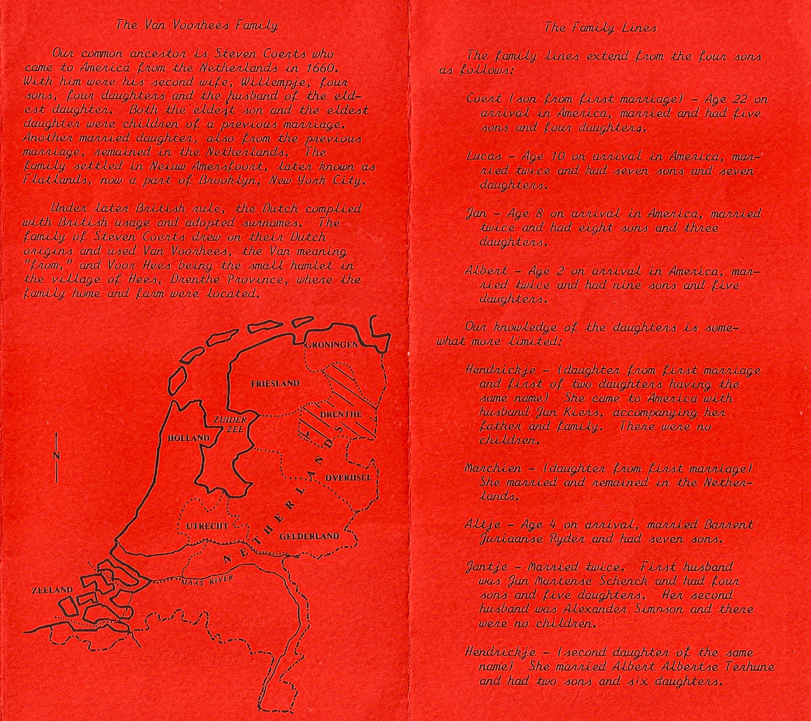 The Van Voorhees Family
Our common ancestor is Steven Coerts who
came to America from the Netherlands in 1660.
With him were his second wife, Willempje, four
sons, four daughters and the husband of the eld-
est daughter. Both the eldest son and the eldest
daughter were children of a previous marriage.
Another married daughter, also from the previous
marriage, remained in the Netherlands. The
family settled in Neiuw Amersfoort, later known as
Flatlands, now a part of Brooklyn, New York City.
Under later British rule, the Dutch complied
with British usage and adopted surnames. The
family of Steven Coerts drew on their Dutch
origins and used Van Voorhees, the Van meaning
"from," and Voor Hees being the small hamlet in
the village of Hees, Drenthe Province, where the
family home and farm were located.
GRONINGEN
FRIESLAND
DRENTHE
ZUIDER
ZEE
HOLLAND
N
OVERIJSEL
UTRECHT
NETHERLANDS
GELDERLAND
MAAS RIVER
ZEELAND
The Family Lines
The family lines extend from the four sons
as follows:
Coert (son from first marriage) - Age 22 on
arrival in America, married and had five
sons and four daughters.
Lucas - Age 10 on arrival in America, mar-
ried twice and had seven sons and seven
daughters.
Jan - Age 8 on arrival in America, married
twice and had eight sons and three
daughters.
Albert - Age 2 on arrival in America, mar-
ried twice and had nine sons and five
daughters.
Our knowledge of the daughters is some-
what more limited:
Hendrickje - (daughter from first marriage
and first of two daughters having the
same name) She came to America with
husband Jan Kiers, accompanying her
father and family. There were no
children.
Marchien - (daughter from first marriage)
She married and remained in the Nether-
lands.
Altje - Age 4 on arrival, married Barrent
Juriaanse Ryder and had seven sons.
Jantje - Married twice. First husband
was Jan Martense Schenck and had four
sons and five daughters. Her second
husband was Alexander Simpson and there
were no children.
Hendrickje - (second daughter of the same
name) She married Albert Albertse Terhune
and had two sons and six daughters.